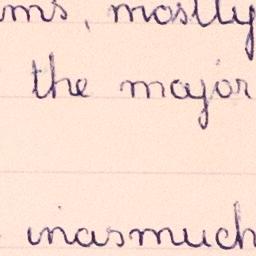 ms, mostly
the major
inasmuch